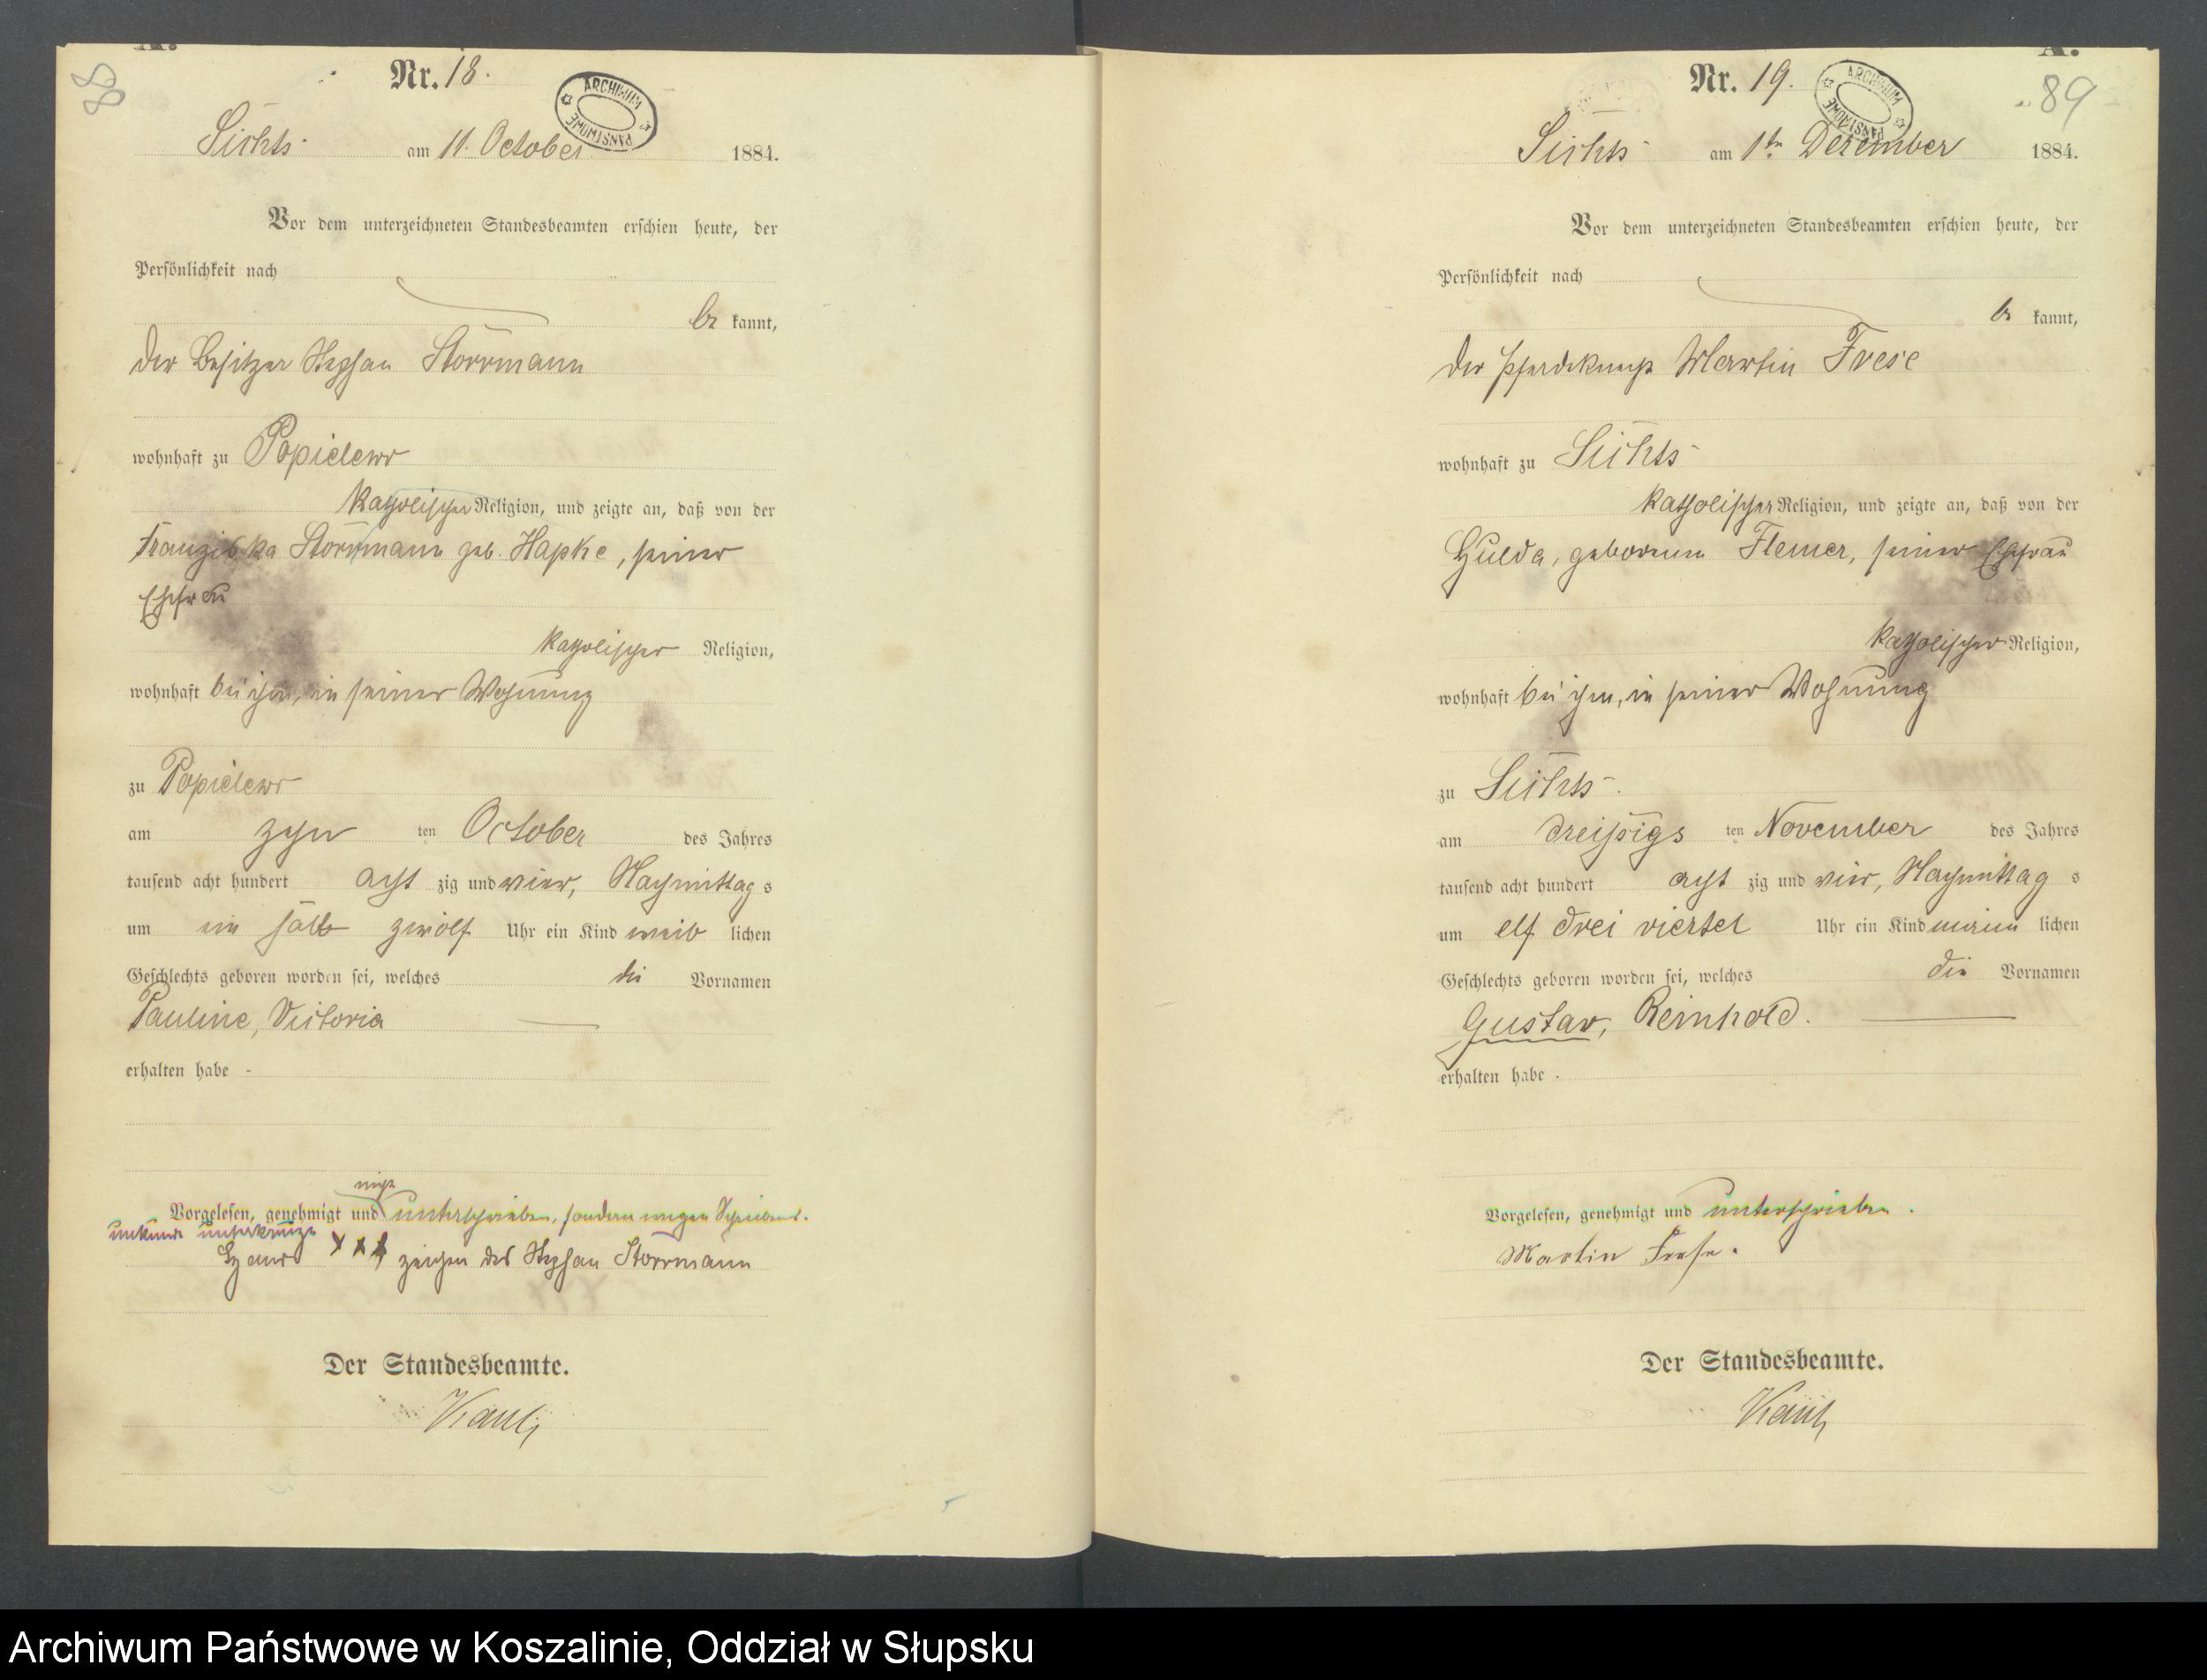 88
Nr. 18.
ARCHIWUM PAŃSTWOWE
am 11. October 1884.
Vor dem unterzeichneten Standesbeamten erschien heute, der
Persönlichkeit nach
be kannt,
der Besitzer Stephan Storrmann
wohnhaft zu Popielewo
katholischer Religion, und zeigte an, daß von der
Franziska Storrmann geb. Hapke, seiner
Ehefrau
katholischer Religion,
wohnhaft bei ihm, in seiner Wohnung
zu Popielewo
am zehn ten October des Jahres
tausend acht hundert acht zig und vier, Nachmittag s
um halb zwölf Uhr ein Kind weib lichen
Geschlechts geboren worden sei, welches die Vornamen
Pauline, Victoria
erhalten habe -
nicht
Vorgelesen, genehmigt und unterschrieben, sondern wegen Schreibens-
unkunde unterkreuzt
xxx zeichen des Stephan Storrmann
Der Standesbeamte.
A.
Nr. 19.
89
ARCHIWUM PAŃSTWOWE
am 1ten Dezember 1884.
Vor dem unterzeichneten Standesbeamten erschien heute, der
Persönlichkeit nach
be kannt,
der Pferdeknecht Martin Frese
wohnhaft zu
katholischer Religion, und zeigte an, daß von der
Hulda, geborenen Flemer, seiner Ehefrau
katholischer Religion,
wohnhaft bei ihm, in seiner Wohnung
zu
am dreißigs ten November des Jahres
tausend acht hundert acht zig und vier, Nachmittag s
um elf drei viertel Uhr ein Kind männ lichen
Geschlechts geboren worden sei, welches die Vornamen
Gustav, Reinhold.
erhalten habe -
Vorgelesen, genehmigt und unterschrieben.
Martin Frese.
Der Standesbeamte.
Archiwum Państwowe w Koszalinie, Oddział w Słupsku